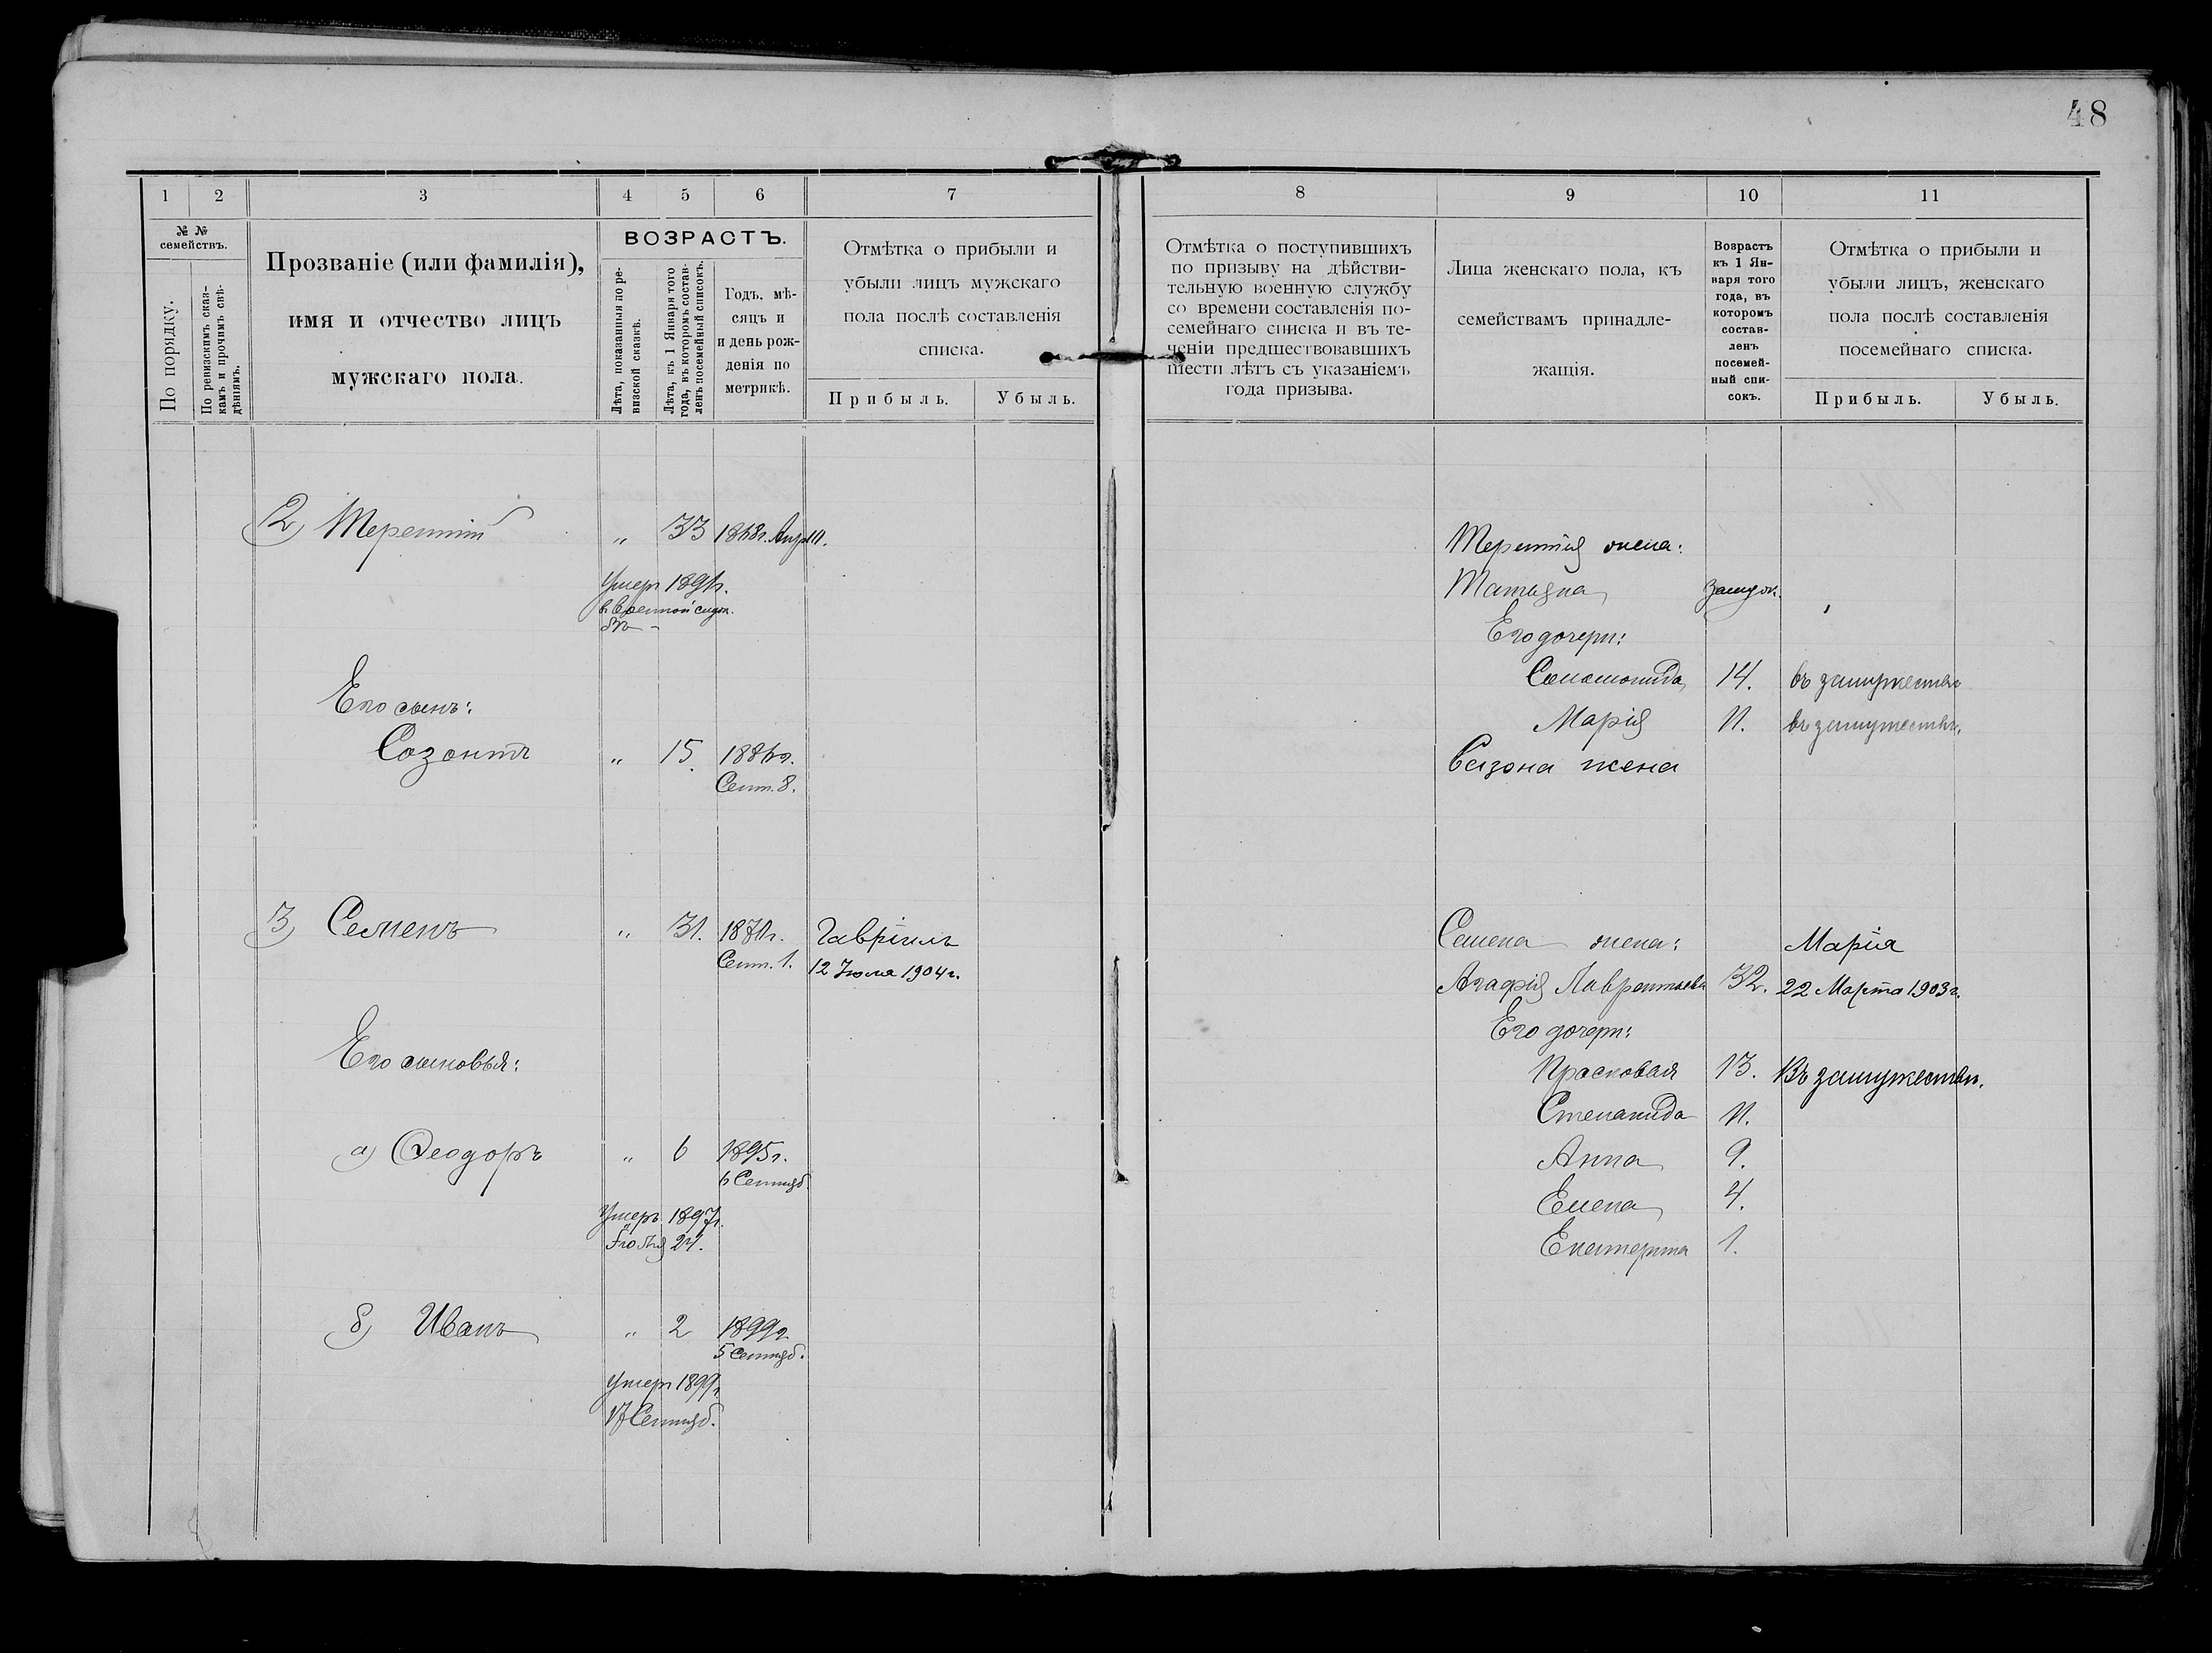 48
1 2 3 4 5 6 7
№ №
семействъ.
По порядку.
По ревизскимъ сказ-
камъ и прочимъ свѣ-
дѣніямъ.
Прозваніе (или фамилія),
имя и отчество лицъ
мужскаго пола.
ВОЗРАСТЪ.
Лѣта, показанныя по ре-
визской сказкѣ.
Лѣта, къ 1 Января того
года, въ которомъ состав-
ленъ посемейный списокъ.
Годъ, мѣ-
сяцъ и
и день рож-
денія по
метрикѣ.
Отмѣтка о прибыли и
убыли лицъ мужскаго
пола послѣ составленія
списка.
Прибыль. Убыль.
2) Терентій " 33 1868г. Апр. 10.
Умеръ 1891г.
въ военной служ-
бѣ
Его сынъ:
Созонтъ " 15. 1886г.
Сент. 8.
3) Семенъ " 31. 1870г. Гавріилъ
Сент. 1. 12 Іюля 1904г.
Его сыновья:
а) Ѳеодоръ " 6 1895г.
6 Сентяб.
Умеръ 1897г.
24.
б) Иванъ " 2 1899г.
5 Сентяб.
Умеръ 1899г.
17 Сентяб.
8 9 10 11
Отмѣтка о поступившихъ
по призыву на дѣйстви-
тельную военную службу
со времени составленія по-
семейнаго списка и въ те-
ченіи предшествовавшихъ
шести лѣтъ съ указаніемъ
года призыва.
Лица женскаго пола, къ
семействамъ принадле-
жащія.
Возрастъ
къ 1 Ян-
варя того
года, въ
которомъ
состав-
ленъ
посемей-
ный спи-
сокъ.
Отмѣтка о прибыли и
убыли лицъ, женскаго
пола послѣ составленія
посемейнаго списка.
Прибыль. Убыль.
Терентія жена:
Татьяна
Его дочери:
Соломонида 14. въ замужествѣ
Марія 11. въ замужествѣ.
Сазона жена
Семена жена: Марія
Агафія Лаврентьева 32. 22 Марта 1903г.
Его дочери:
Прасковья 13. Въ замужествѣ.
Степанида 11.
Анна 9.
Елена 4.
Екатерина 1.